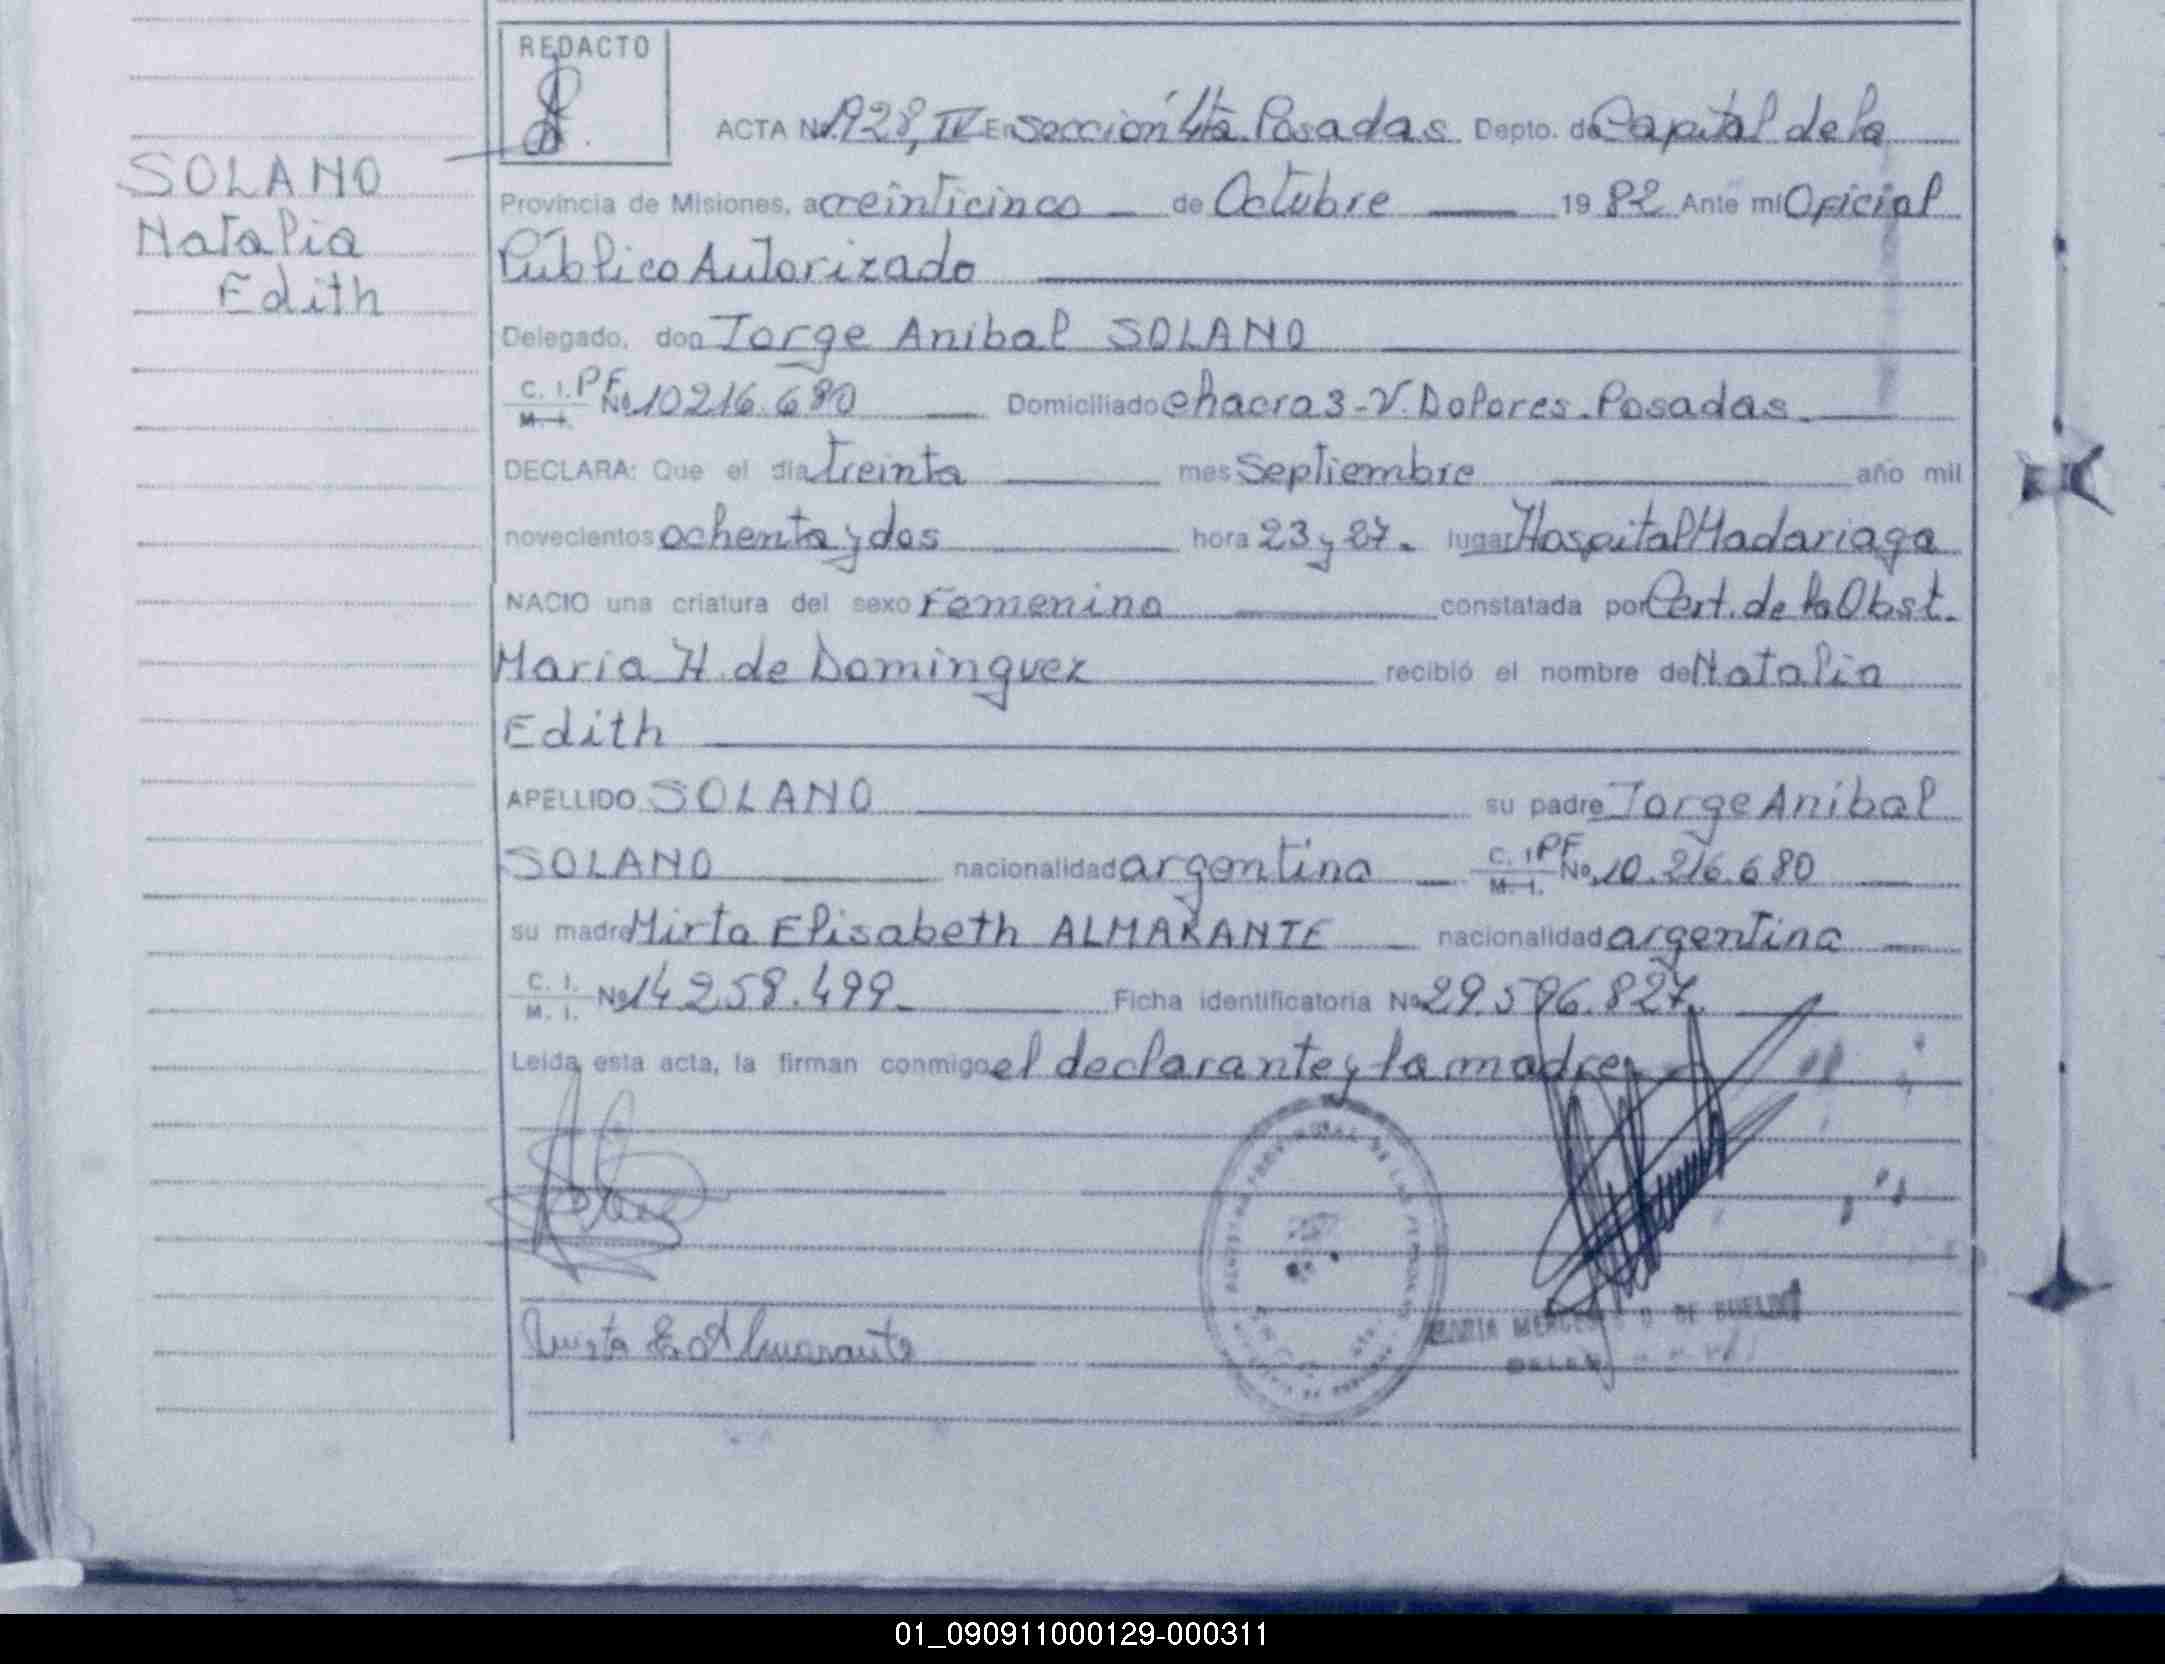 REDACTO
ACTA Nº 1928, IV En Sección 4ta. Posadas Depto. de Capital de la
SOLANO
Natalia
Edith
Provincia de Misiones, a veinticinco de Octubre 1982 Ante mi Oficial
Público Autorizado
Delegado, don Jorge Anibal SOLANO
C. I. PF M. I. Nº 10216.680 Domiciliado chacra 3-V. Dolores. Posadas.
DECLARA: Que el día treinta mes Septiembre año mil
novecientos ochenta y dos hora 23 y 27. lugar Hospital Madariaga
NACIO una criatura del sexo Femenino constatada por Cert. de la Obst.
Maria H. de Dominguez recibió el nombre de Natalia
Edith
APELLIDO SOLANO su padre Jorge Anibal
SOLANO nacionalidad argentina C. I. PF M. I. Nº 10.216.680
su madre Mirta Elisabeth ALMARANTE nacionalidad argentina
C. I. M. I. Nº 14258.499. Ficha identificatoria Nº 29.596.827.
Leída esta acta, la firman conmigo el declarante y la madre
Mirta E. Almarante
MARIA DE
01_090911000129-000311